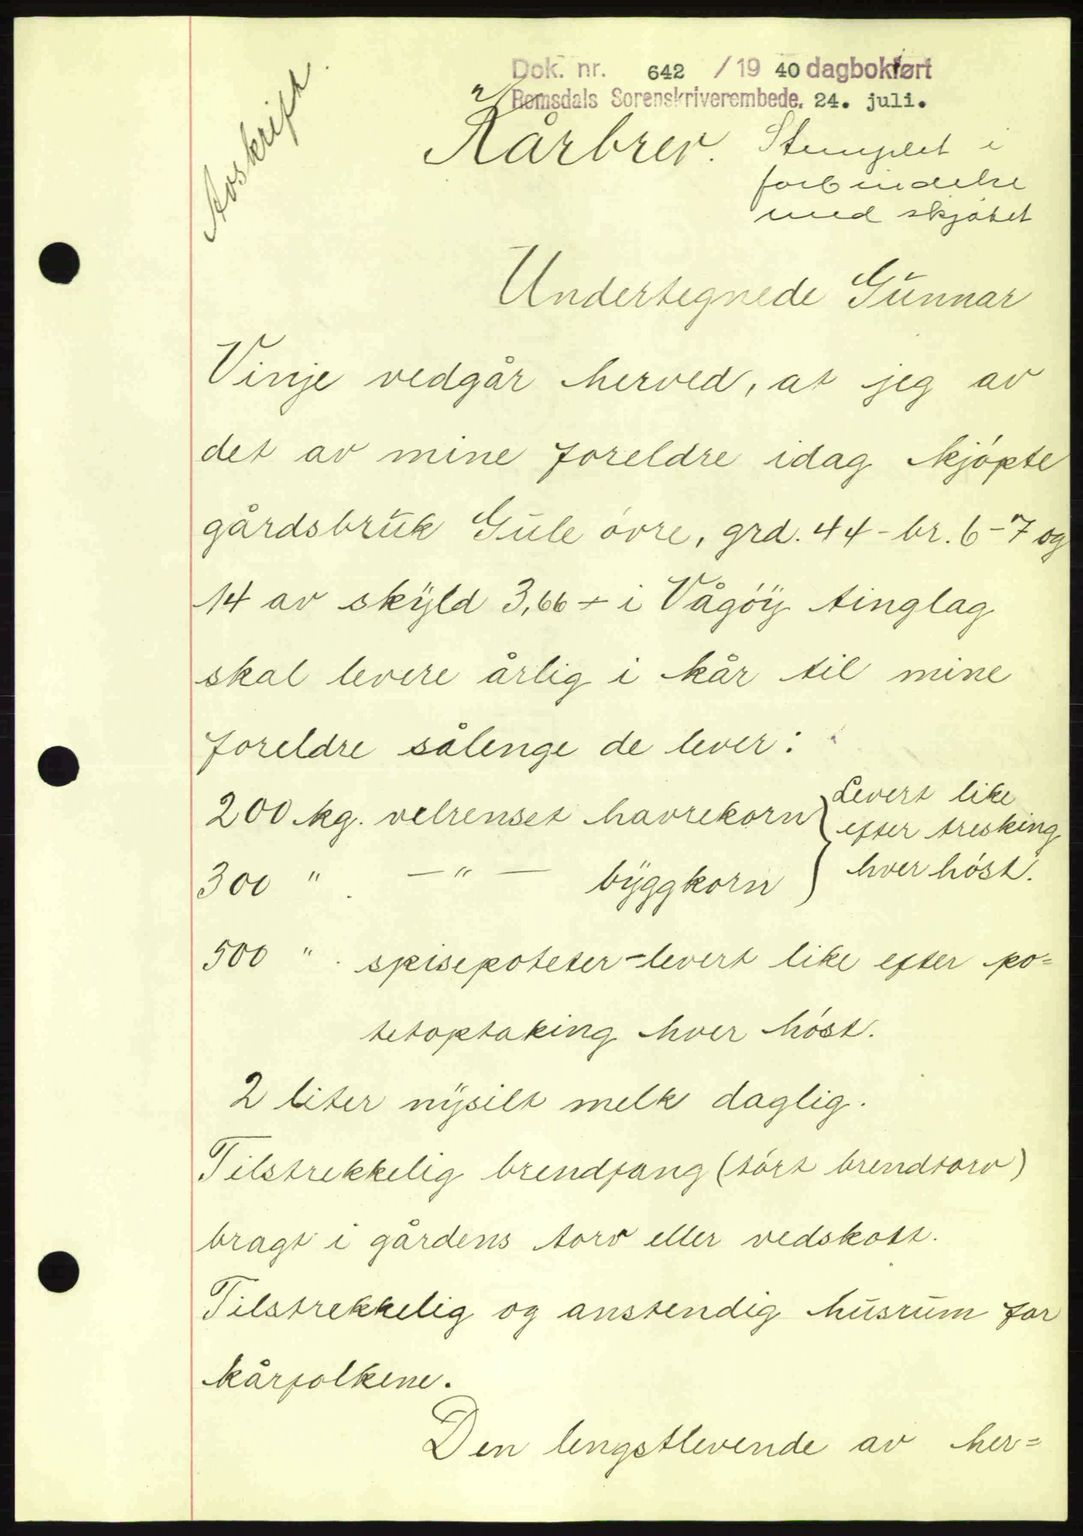 Dok. nr. 642 / 19 40 dagbokført
Romsdals Sorenskriverembede. 24. juli.
Avskrift.
Kårbrev.
Stemplet i
forbindelse
med skjøtet
Undertegnede Gunnar
Vinje vedgår herved, at jeg av
det av mine foreldre idag kjøpte
gårdsbruk Gule øvre, grd. 44 - br. 6 - 7 og
14 av skyld 3,66 + i Vågøy tinglag
skal levere årlig i kår til mine
foreldre sålenge de lever:
200 kg. velrenset havrekorn } Levert like
efter tresking
300 " . — " — byggkorn } hver høst.
500 " . spisepoteter - levert like efter po=
tetoptaking hver høst.
2 liter nysilt melk daglig.
Tilstrekkelig brendfang (tørt brendtorv)
bragt i gårdens torv eller vedskott.
Tilstrekkelig og anstendig husrum for
kårfolkene.
Den lengstlevende av her=